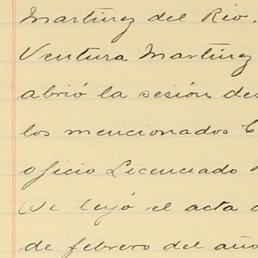 Martínez del Río.
Ventura Martínez
abrió la sesión des
los mencionados C
oficio Licenciado
Se leyó el acta
de febrero del año